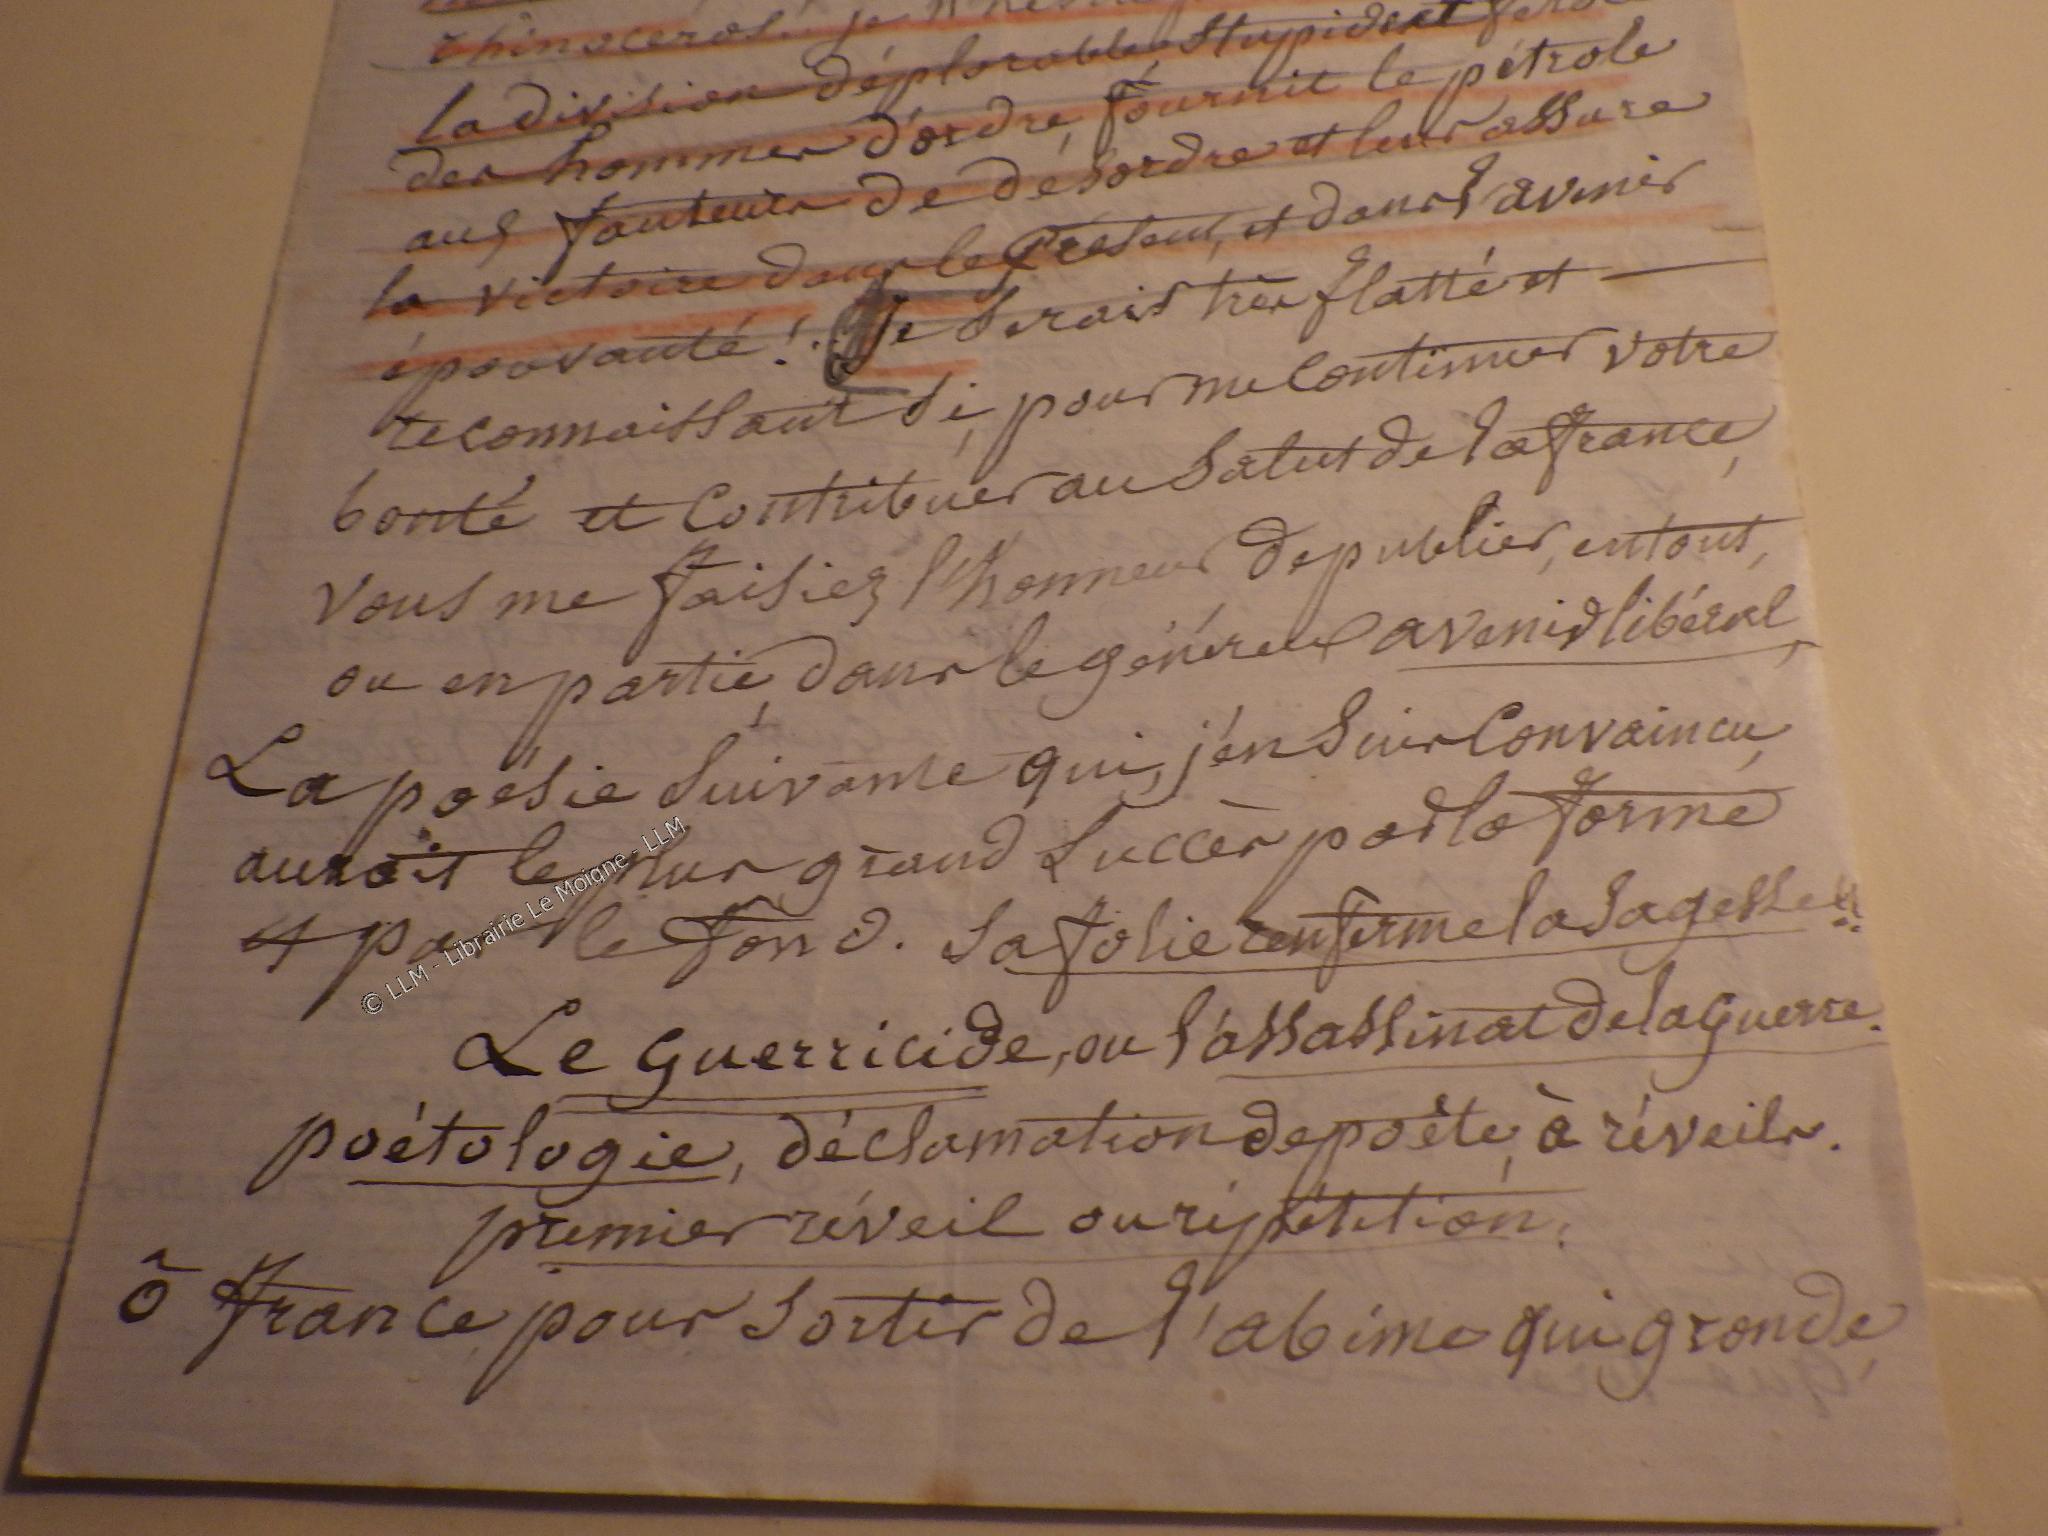 rhinoceros.. je
la division déplorable, stupide et
des hommes d'ordre, fournit le pétrole
aux fauteurs de désordre et leur assure
la victoire dans le présent, et dans l'avenir
épouvanté!.. Je serais très flatté et
reconnaissant si, pour me continuer votre
bonté et contribuer au salut de la france,
vous me faisiez l'honneur de publier, en tout,
ou en partie, dans le généreux avenir libéral,
La poësie suivante qui, j'en suis convaincu,
aurait le plus grand succès par la forme
et par le fond. sa folie renferme la sagesse
Le Guerricide, ou l'assassinat de la Guerre.
poétologie, déclamation de poëte, à réveils.
premier réveil ou répétition.
ô france, pour sortir de l'abime qui gronde,
© LLM - Librairie Le Moigne - LLM